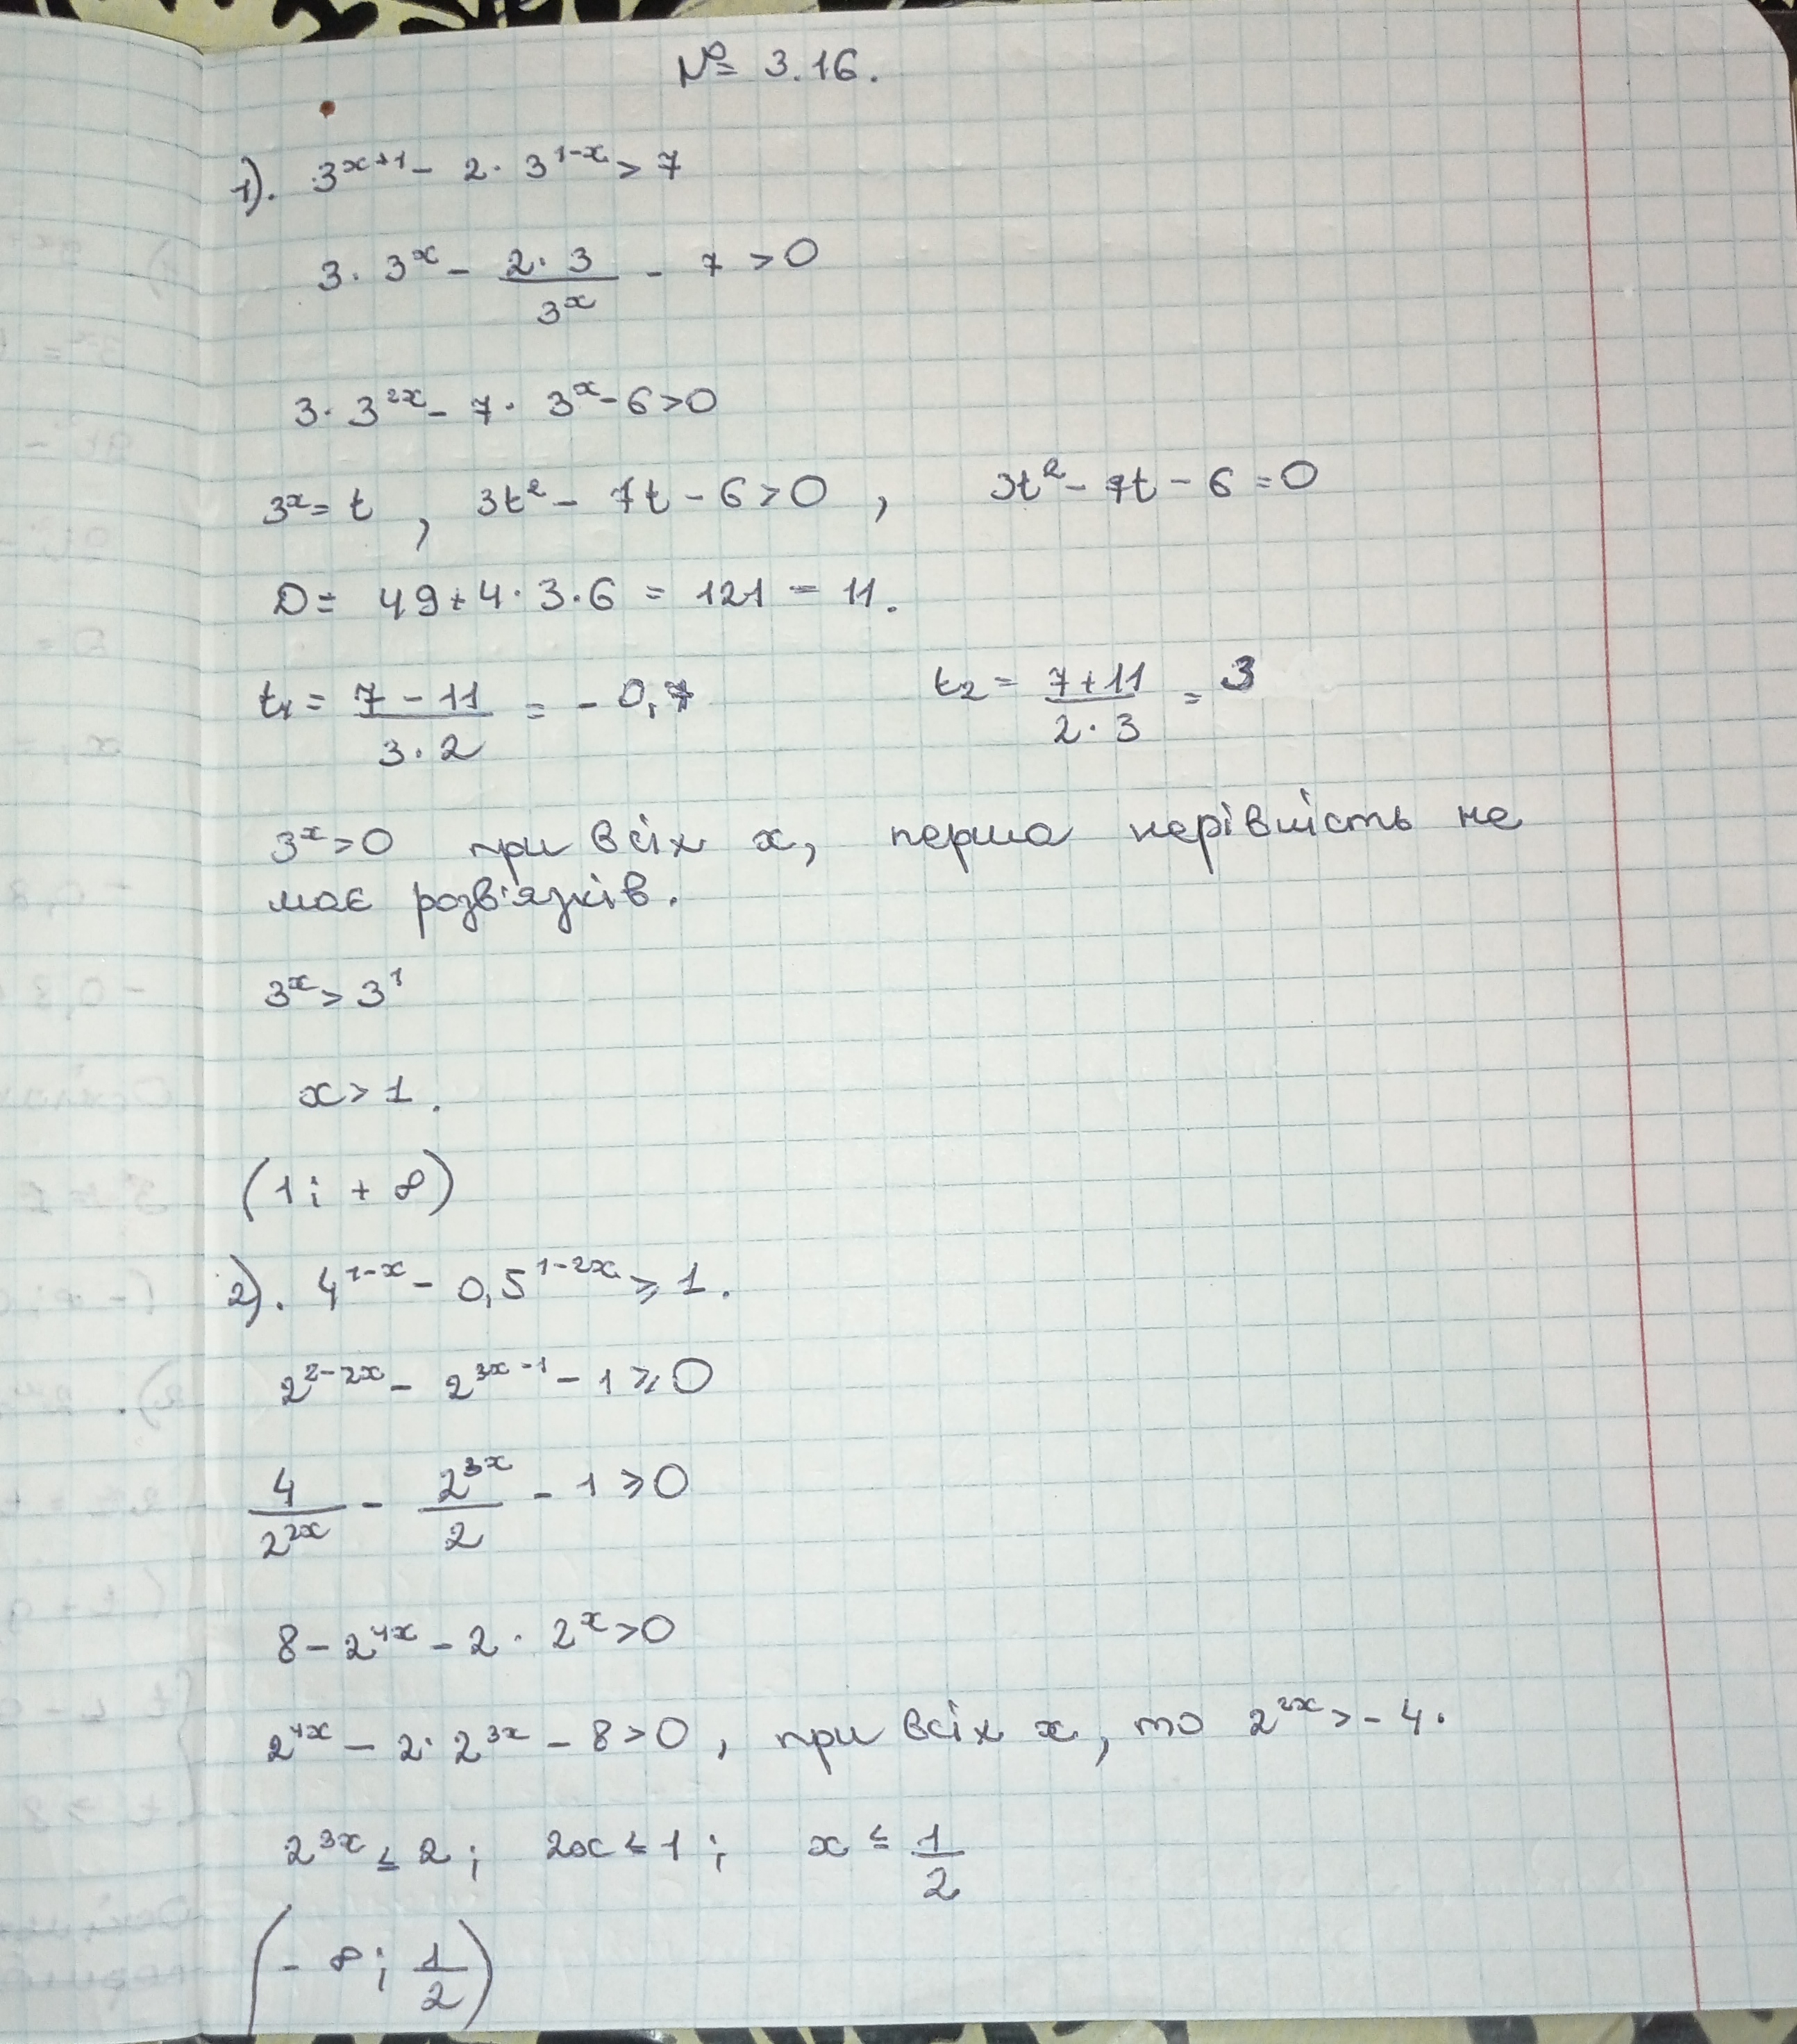 № 3.16.
1). 3^{x+1} - 2 · 3^{1-x} > 7
3 · 3^x - \frac{2 · 3}{3^x} - 7 > 0
3 · 3^{2x} - 7 · 3^x - 6 > 0
3^x = t , 3t^2 - 7t - 6 > 0 , 3t^2 - 7t - 6 = 0
D = 49 + 4 · 3 · 6 = 121 = 11.
t_1 = \frac{7 - 11}{3 · 2} = - 0,7 t_2 = \frac{7 + 11}{2 · 3} = 3
3^x > 0 при всіх x, перша нерівність не
має розв'язків.
3^x > 3^1
x > 1.
(1; + ∞)
2). 4^{1-x} - 0,5^{1-2x} ⩾ 1.
2^{2-2x} - 2^{3x-1} - 1 ⩾ 0
\frac{4}{2^{2x}} - \frac{2^{3x}}{2} - 1 ⩾ 0
8 - 2^{4x} - 2 · 2^x > 0
2^{4x} - 2 · 2^{3x} - 8 > 0 , при всіх x, то 2^{2x} > - 4.
2^{3x} ≤ 2 ; 2x ≤ 1 ; x ≤ \frac{1}{2}
(- ∞ ; \frac{1}{2})